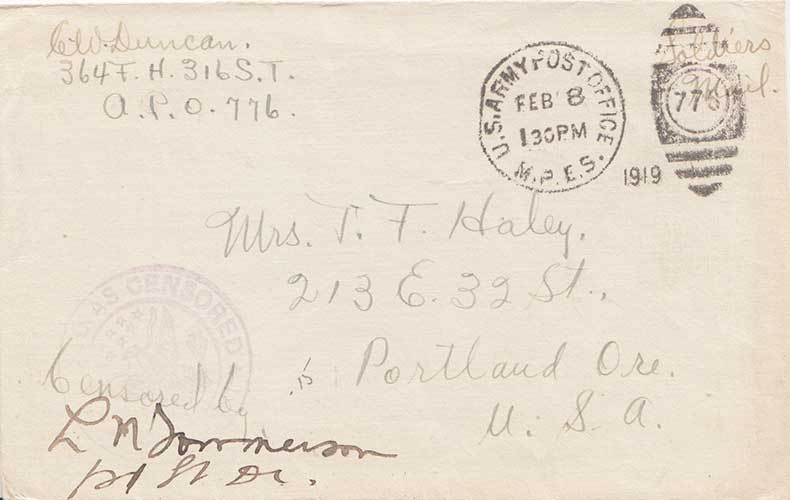 C.W. Duncan.
364 F. H. 316 S. T.
A. P. O. 776.
U.S. ARMY POST OFFICE
FEB 8
1 30 PM
M.P.E.S.
1919
Soldiers
Mail.
776
Mrs. T. F. Haley,
213 E. 32 St.,
Portland Ore.
U. S. A.
AS CENSORED
Censored by
L M
1st Lt